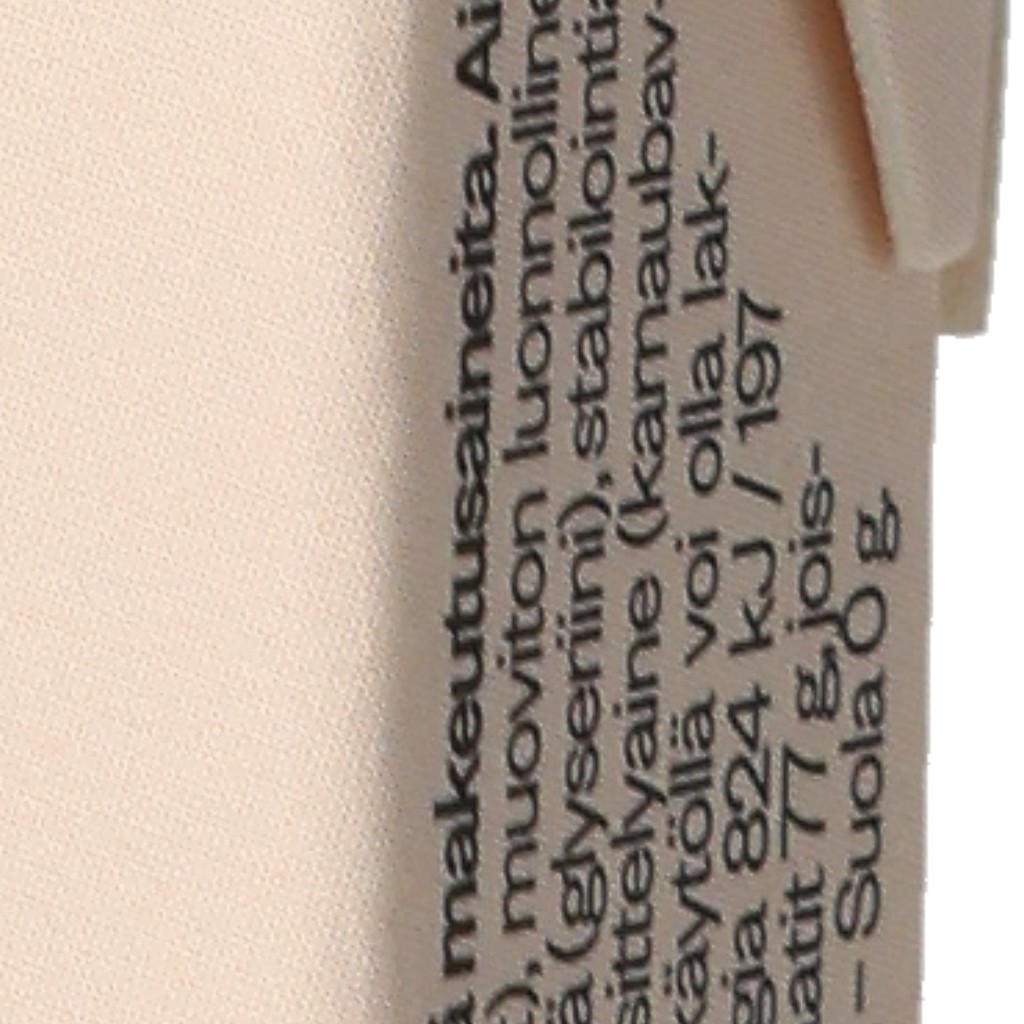 makeutusaineita. Ai
muoviton luonnolline
(glyseriini), stabilointia
sittelyaine (karnaubav-
käytöllä voi olla lak-
gia 824 kJ / 197
aatit 77 g, jois-
– Suola 0 g